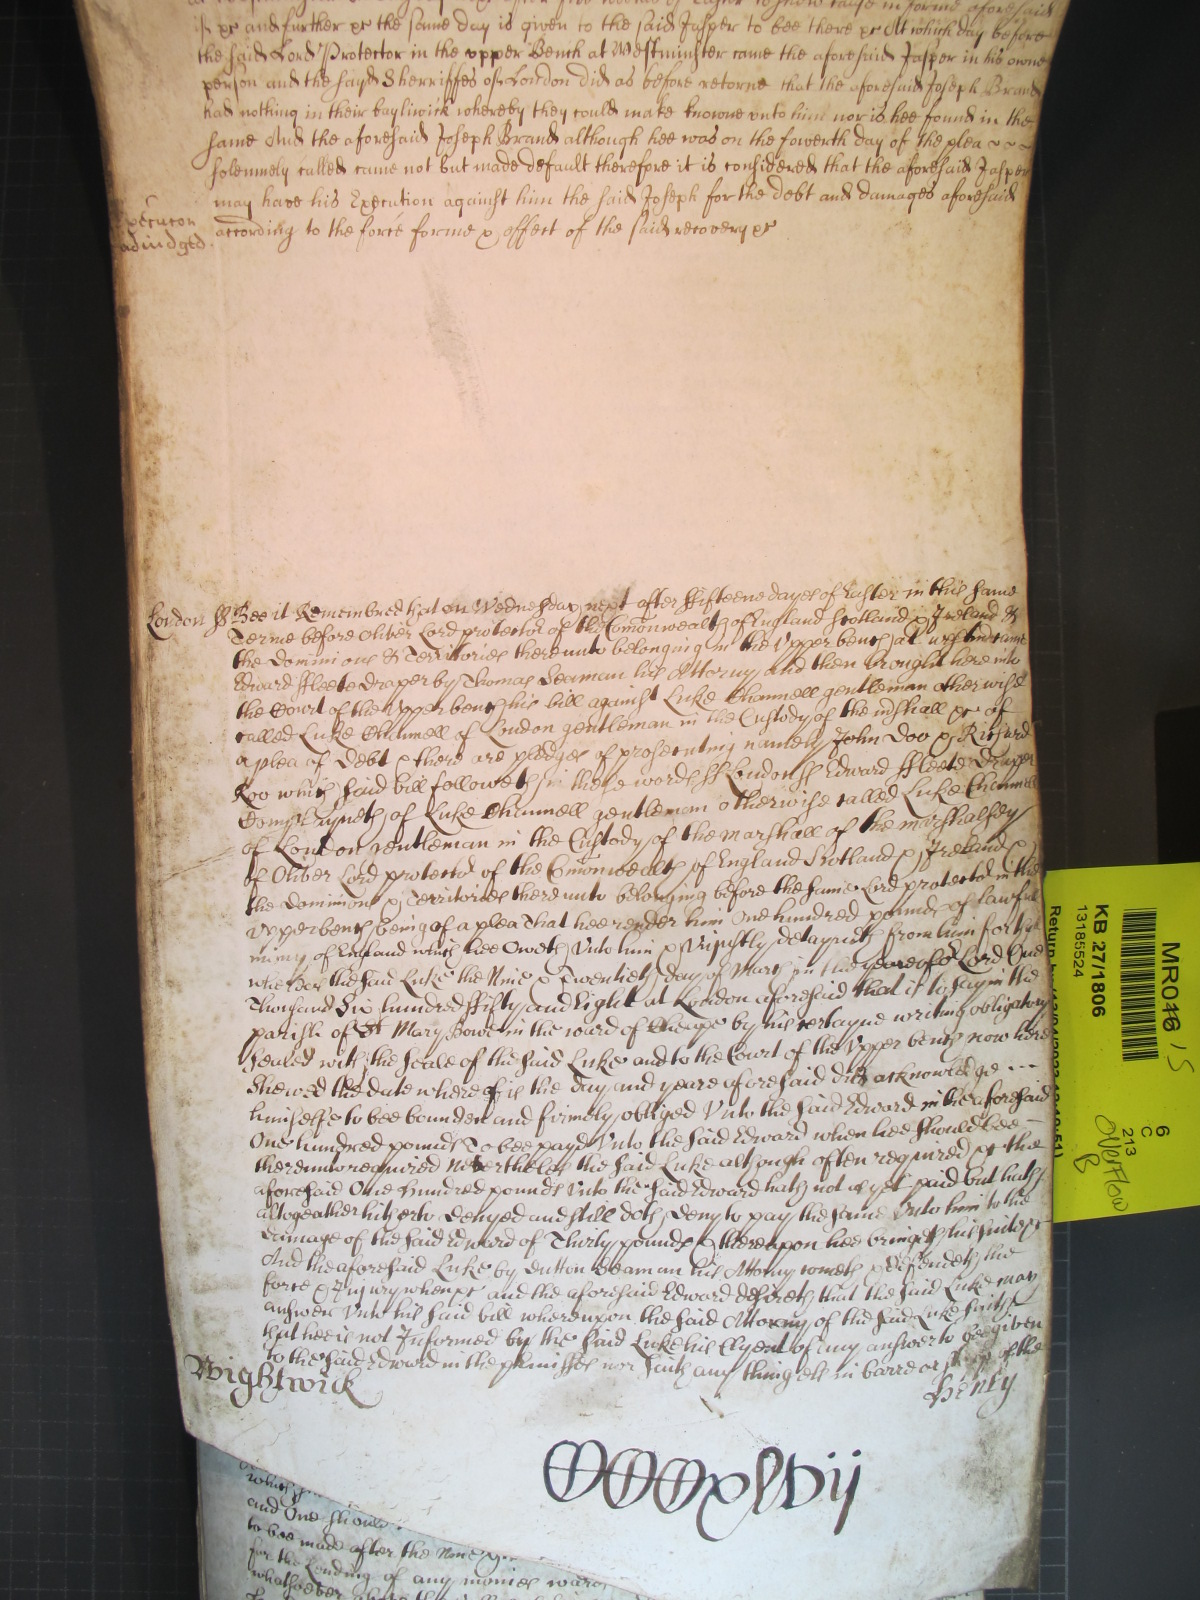 is &c and further &c the same day is given to the said Jasper to bee there &c At which day before
the said Lord Protector in the upper Bench at Westminster came the aforesaid Jasper in his owne
person and the sayd Sherriffes of London did as before retorne that the aforesaid Joseph Brand
had nothing in their bayliwick whereby they could make knowne unto him nor is hee found in the
same And the aforesaid Joseph Brand although hee was on the fowerth day of the plea
solemnely called came not but made default therefore it is considered that the aforesaid Jasper
may have his Execution against him the said Joseph for the debt and damages aforesaid
according to the force forme & effect of the said recovery &c
adiudged
London ss Bee it Remembred that on Wednesday next after ffifteene dayes of Easter in this same
Terme before Oliver Lord protector of the Comonwealth of England Scotland & Ireland &
the Dominions & Territories thereunto belonging in the Upper bench at came
Edward ffleete draper by Thomas Seaman his Attorny and then brought here into
the Court of the Upper bench his bill against Luke Channell gentleman otherwise
called Luke Channell of London gentleman in the Custody of the mshall &c of
a plea of Debt & there are pledges of prosecuting namely John Doo & Richard
Roo which said bill followeth in these words ss London ss Edward ffleete Draper
Complayneth of Luke Channell gentleman otherwise called Luke Channell
of London gentleman in the Custody of the marshall of the marshallsey
of Oliver Lord protector of the Comonwealth of England Scotland & Ireland &
the Dominions & Territories thereunto belonging before the same Lord protector in the
upper bench being of a plea That hee render him One hundred pounds of lawfull
mony of England which hee Oweth Unto him & Uniustly detayneth from him for that
whereas the said Luke the Nine & Twentieth day of March in the yeare of or Lord One
Thousand Six hundred ffifty and Eight at London aforesaid that is to say in the
parish of St Mary Bowe in the ward of Cheape by his certayne writing obligatory
Sealed with the Seale of the said Luke and to the Court of the Upper bench now here
Shewed the date whereof is the day and yeare aforesaid did acknowledge
himselfe to bee bounden and firmely obliged Unto the said Edward in the aforesaid
One hundred pounds To bee payd Unto the said Edward when hee should bee
thereunto required Neverthelesse the said Luke although often required &c the
aforesaid One hundred pounds Unto the said Edward hath not as yet paid but hath
altogeather hitherto denyed and still doth deny to pay the same Unto him to the
damage of the said Edward of Thirty pounds & thereupon hee bringeth his suite &c
And the aforesaid Luke by Dutton Seaman his Attorny cometh & defendeth the
force & Iniury when &c and the aforesaid Edward desireth that the said Luke may
answer Unto his said bill whereupon the said Attorny of the said Luke saith
that hee is not Informed by the said Luke his Clyent of any answer to bee given
to the said Edward in the p'misses nor saith any thing els in barre of the
Wightwick
Henly
CCCxlvij
and One should
to bee made after the
for the Lending of any monies wares
whatsoever
MR046
KB 27/1806
13185524
6
C
213
overflow
B